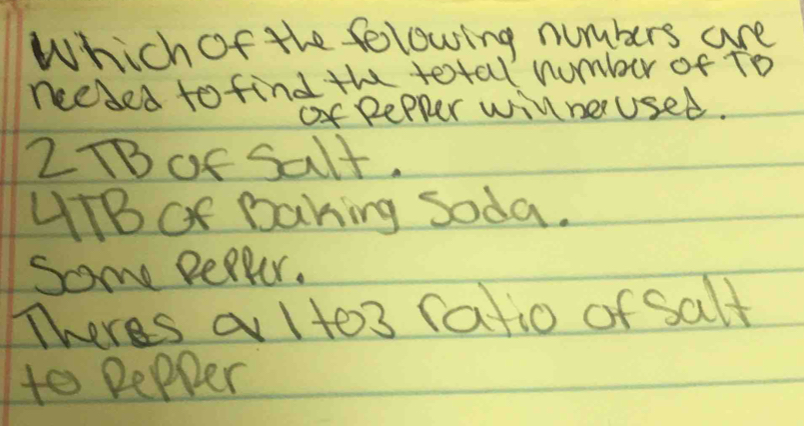 Which of the folowing numbers are
needed to find the total number of TB
of Pepper will be used.
2 TB of Salt.
4 TB of Baking Soda.
Some Pepper.
Theres a 1 to 3 ratio of Salt
to Pepper